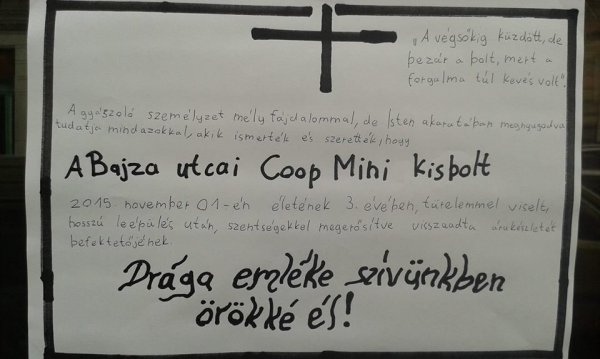 „A végsőkig küzdött, de
bezár a bolt, mert a
forgalma túl kevés volt".
A gyászoló személyzet mély fájdalommal, de Isten akaratában megnyugodva
tudatja mindazokkal, akik ismerték és szerették, hogy
A Bajza utcai Coop Mini kisbolt
2015. november 01-én életének 3. évében, türelemmel viselt,
hosszú leépülés után, szentségekkel megerősítve visszaadta árukészletét
befektetőjének.
Drága emléke szívünkben
örökké él!